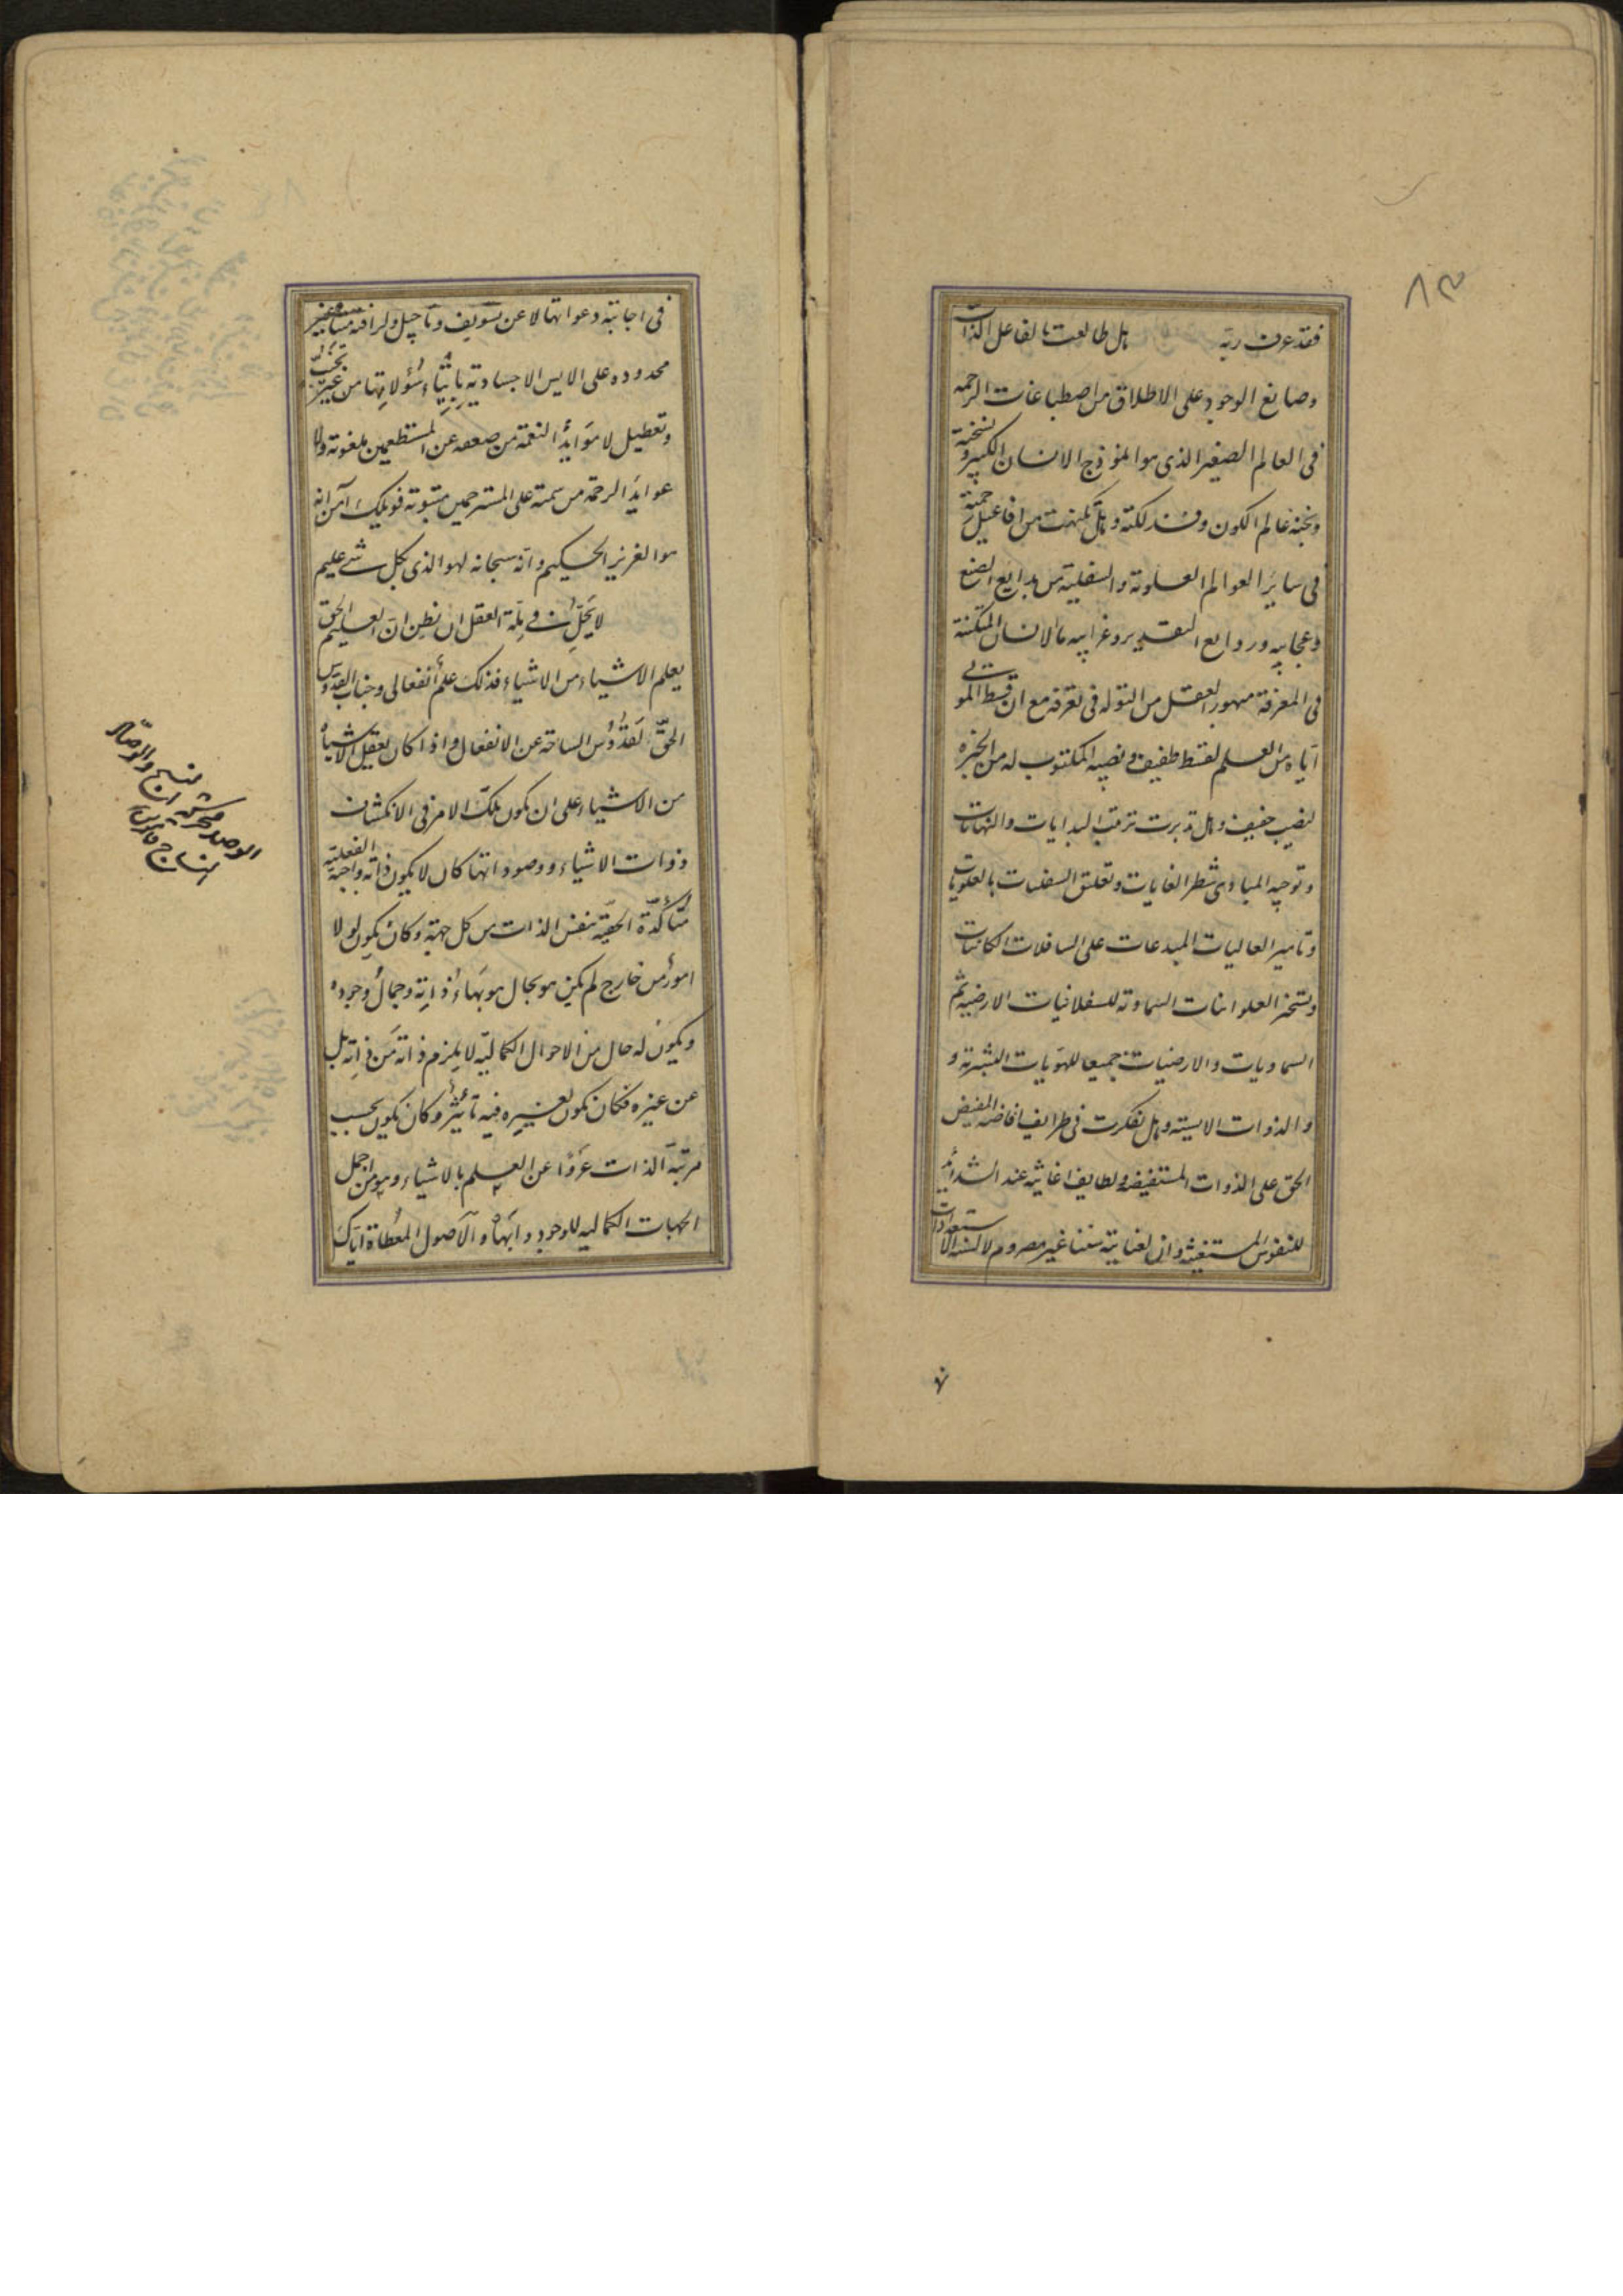 ٨٣
فقد عرف ربه هل طالعت بالفاعل الذات
وصانع الوجود على الاطلاق من اصطباغات الرحمه
فى العالم الصغير الذى هو انموذج الانسان الكبير ونسخته
ونخبة عالم الكون وفذلكته وهل تكهنت من افاعيل حكمته
فى ساير العوالم العلوية والسفلية من بدايع الصنع
وعجايبه وروايع التقدير وغرايبه ما لانسان المتكنه
فى المعرفة مبهور العقل من التوله فى تعرفه مع ان قسط الموتى
اياه من العلم لقسط طفيف ونصيبه المكتوب له من الخبره
لنصيب خفيف وهل تدبرت ترتب البدايات والنهايات
وتوجيه المبادى شطر الغايات وتعلق السفليات بالعلويات
وتاثير العاليات المبدعات على السافلات الكاينات
وتسخر العلوانيات السماوية للسفلانيات الارضيه ثم
السماويات والارضيات جميعا للهويات البشرية و
والذوات الانسيه وهل تفكرت فى طرايف افاضه المفيض
الحق على الذوات المستفيضه ولطايف اغاثته عند الشدايد
للنفوس المستغيثه وان لعنايته سننا غير مصرومه لالسنه الاستعدادات
فى اجابة دعواتها لا عن تسويف وتاجيل ولرافته غير
محدوده على الايس الاجساديه بايتاء سؤولاتها من غير تخيب
وتعطيل لا موايد النعمة من صعصعه عن المستطعمين ملغوته ولا
عوايد الرحمة من سمته على المسترحمين مبتوته فويلك آمن انه
هو العزيز الحكيم وانه سبحانه لهو الذى بكل شى عليم
لا يحل فى ملة العقل ان نظن ان العليم الحق
يعلم الاشياء من الاشياء فذلك علم انفعالى وجناب القدوس
الحق لقدوس الساحة عن الانفعال واذا كان يعقل الاشياء
من الاشياء على ان تكون تلك الامر فى الانكشاف
ذوات الاشياء ووصوداتها كان لا يكون ذاته واجبة الفعلية
متأكدة الحقية بنفس الذات من كل جهة وكان يكون لولا
امور من خارج لم يكن هو بحال هو بهاء ذاته وجمال وجوده
ويكون له حال من الاحوال الكمالية لا يلزم ذاته من ذاته بل
عن غيره فكان يكون لغيره فيه تأثير وكان يكون بحسب
مرتبة الذات عروا عن العلم بالاشياء وهو من اجمل
الجهات الكماليه للوجود وابهاه والاصول المعطاة اياك